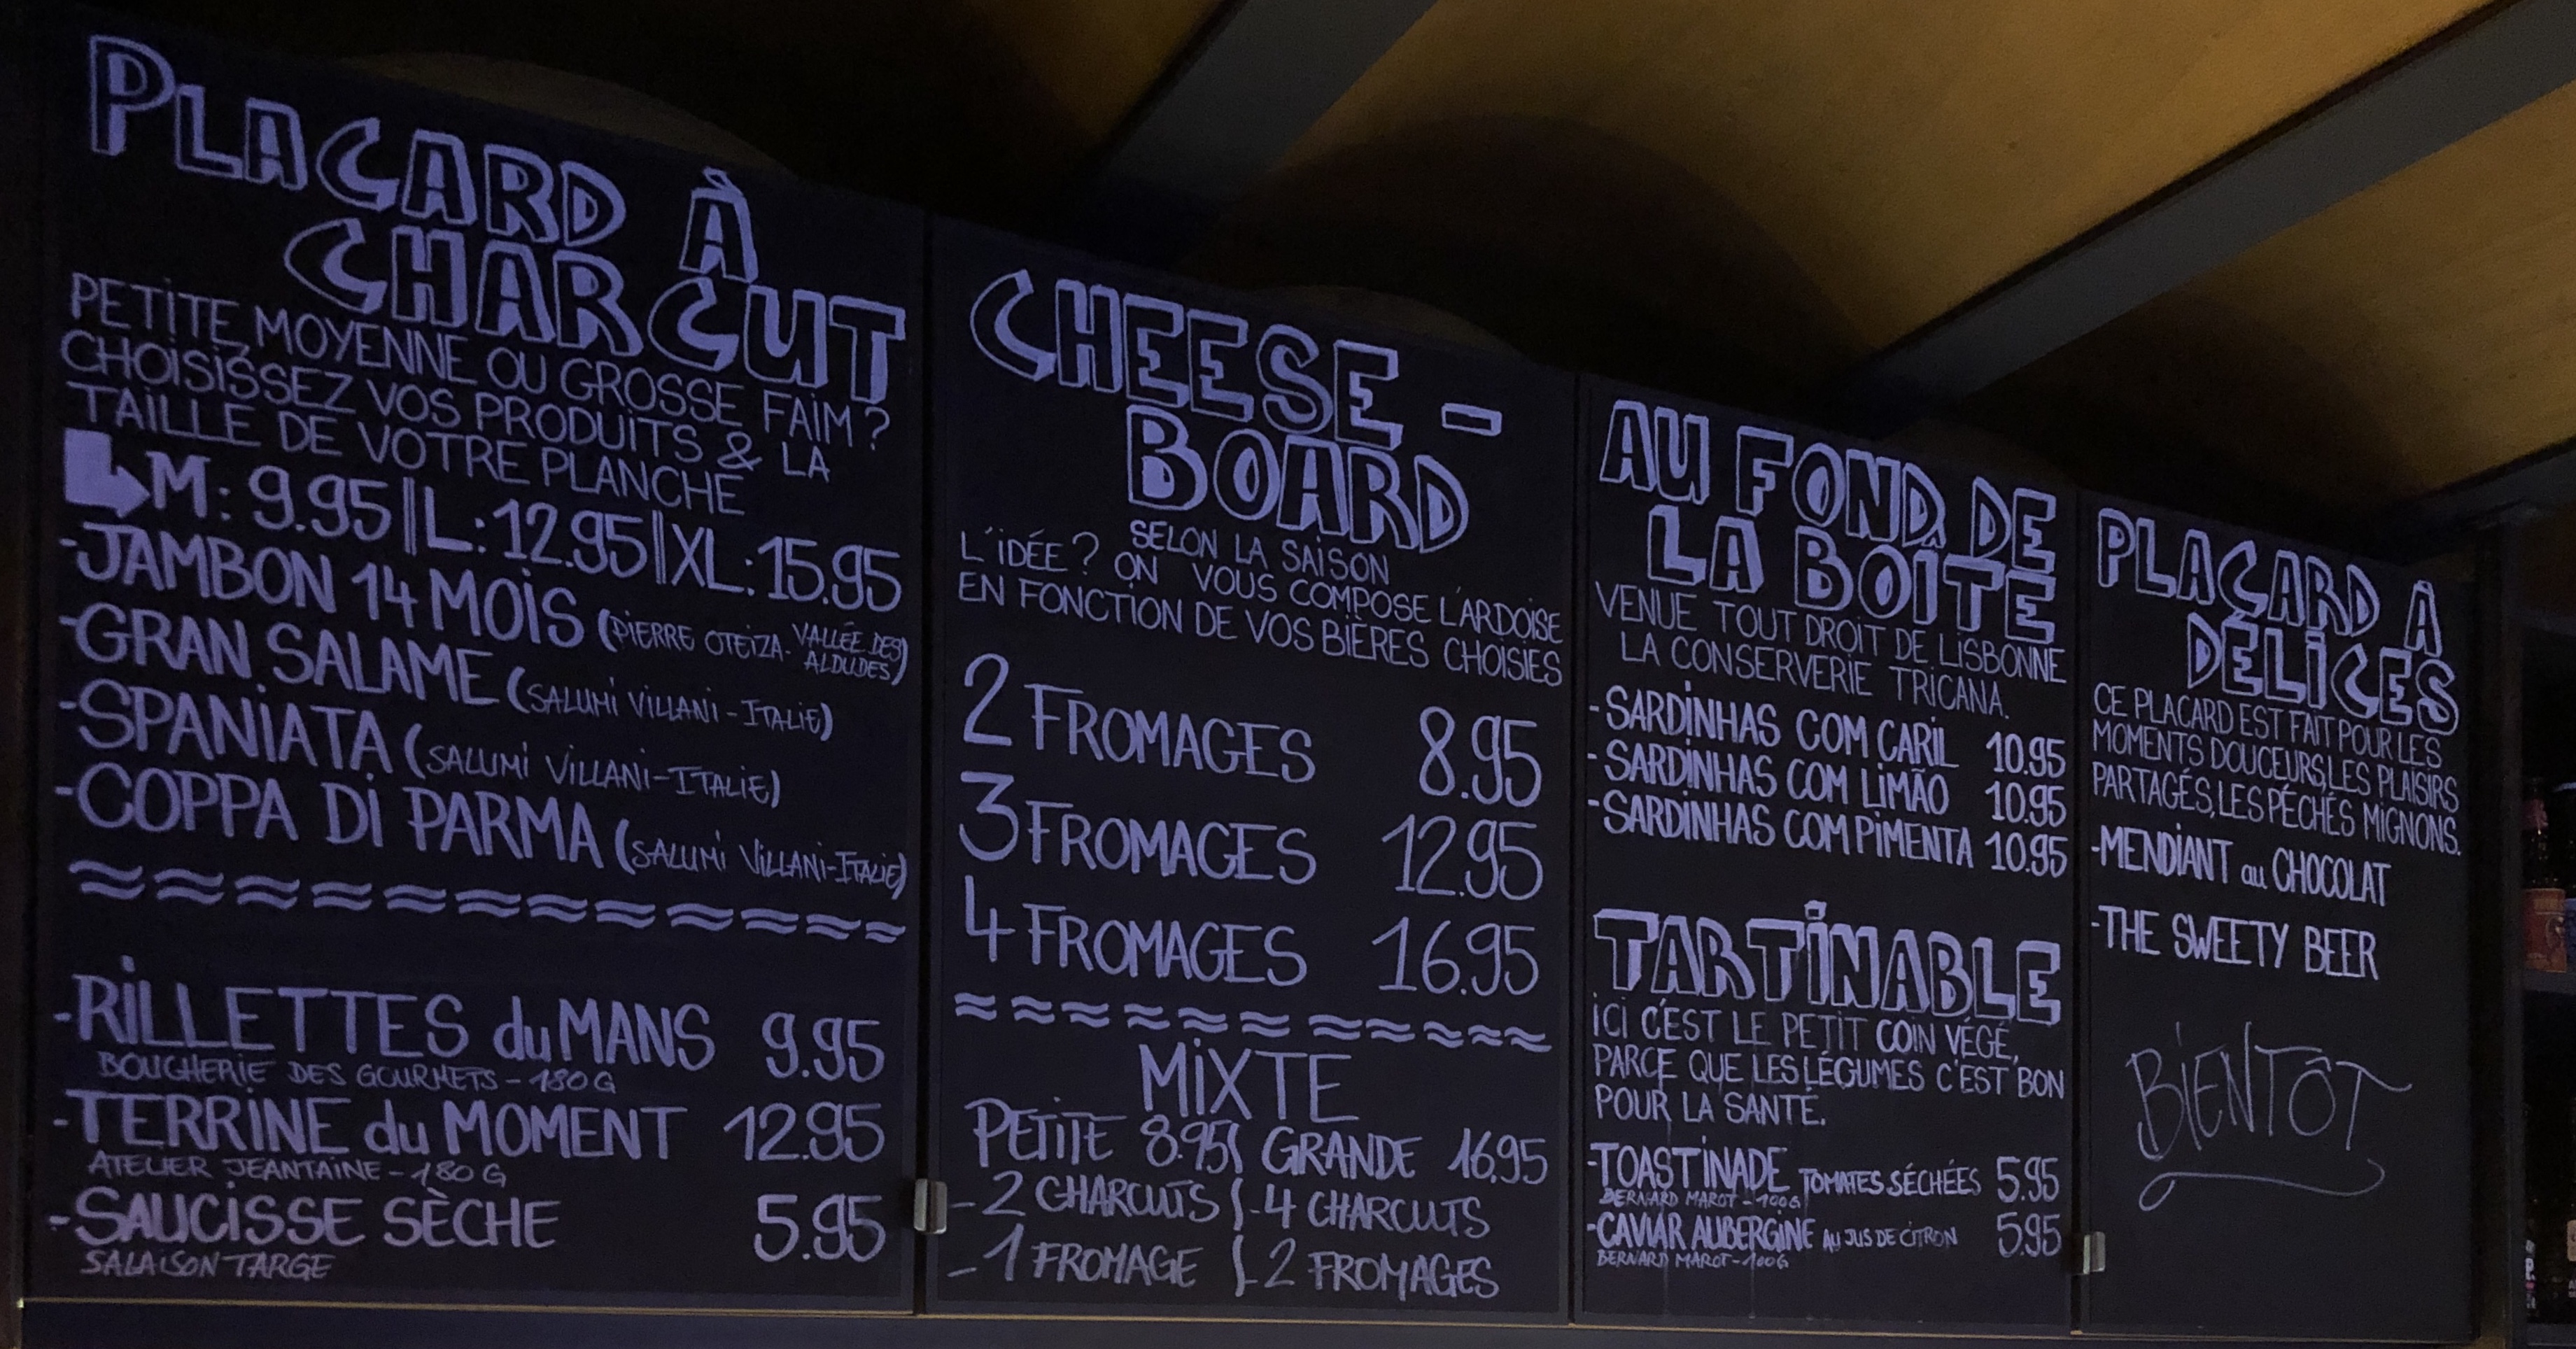 PLACARD À
CHARCUT
PETITE, MOYENNE OU GROSSE FAIM ?
CHOISISSEZ VOS PRODUITS & LA
TAILLE DE VOTRE PLANCHE
M: 9.95 || L: 12.95 || XL: 15.95
-JAMBON 14 MOIS (PIERRE OTEIZA - VALLÉE DES
ALDUDES)
-GRAN SALAME (SALUMI VILLANI - ITALIE)
-SPANIATA (SALUMI VILLANI - ITALIE)
-COPPA DI PARMA (SALUMI VILLANI - ITALIE)
-RILLETTES du MANS 9.95
BOUCHERIE DES GOURMETS - 180 G
-TERRINE du MOMENT 12.95
ATELIER JEANTAINE - 180 G
-SAUCISSE SÈCHE 5.95
SALAISON TARGE
CHEESE-
BOARD
SELON LA SAISON
L'IDÉE ? ON VOUS COMPOSE L'ARDOISE
EN FONCTION DE VOS BIÈRES CHOISIES
2 FROMAGES 8.95
3 FROMAGES 12.95
4 FROMAGES 16.95
MIXTE
PETITE 8.95 GRANDE 16.95
- 2 CHARCUTS - 4 CHARCUTS
- 1 FROMAGE - 2 FROMAGES
AU FOND DE
LA BOÎTE
VENUE TOUT DROIT DE LISBONNE
LA CONSERVERIE TRICANA.
-SARDINHAS COM CARIL 10.95
-SARDINHAS COM LIMÃO 10.95
-SARDINHAS COM PIMENTA 10.95
TARTINABLE
ICI C'EST LE PETIT COIN VÉGÉ,
PARCE QUE LES LÉGUMES C'EST BON
POUR LA SANTÉ.
-TOASTINADE TOMATES SÉCHÉES 5.95
BERNARD MAROT - 100G
-CAVIAR AUBERGINE AU JUS DE CITRON 5.95
BERNARD MAROT - 100G
PLACARD À
DÉLICES
CE PLACARD EST FAIT POUR LES
MOMENTS DOUCEURS, LES PLAISIRS
PARTAGÉS, LES PÉCHÉS MIGNONS.
-MENDIANT au CHOCOLAT
-THE SWEETY BEER
BIENTÔT